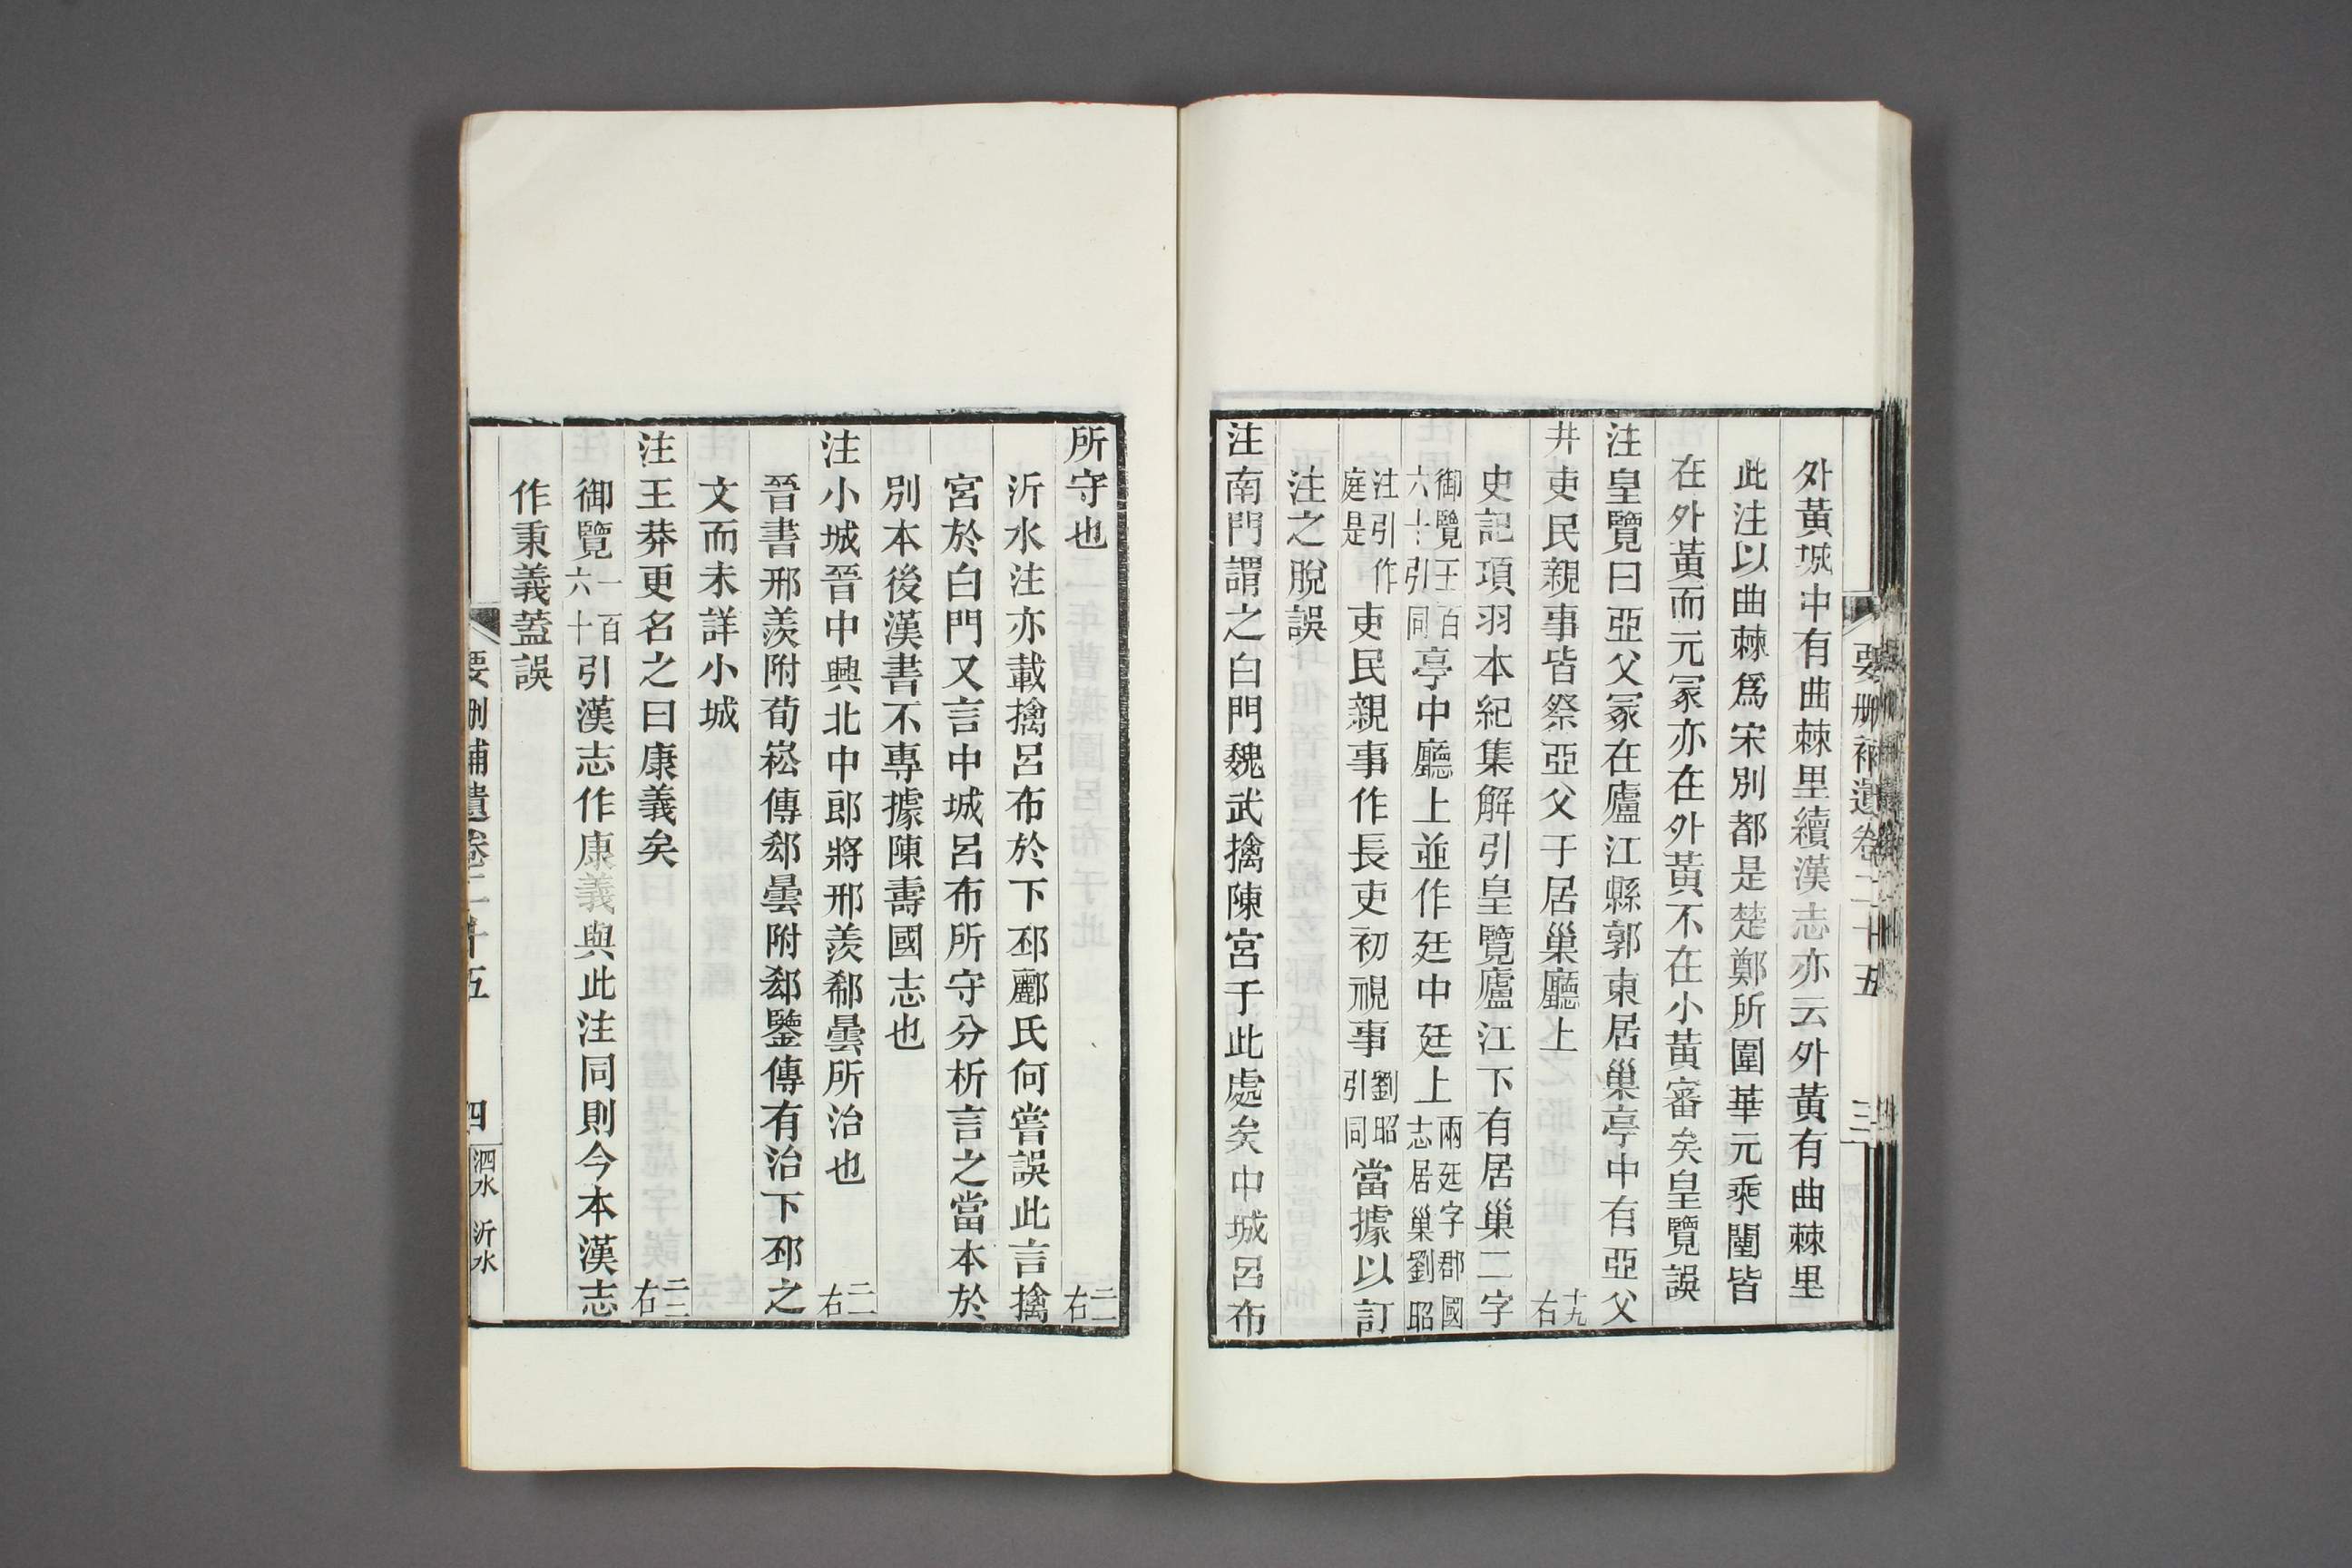 外黃城中有曲棘里續漢志亦云外黃有曲棘里
此注以曲棘爲宋別都是楚鄭所圍華元乘闉皆
在外黃而元冢亦在外黃不在小黃審矣皇覽誤
注皇覽曰亞父冢在廬江縣郭東居巢亭中有亞父
井吏民親事皆祭亞父于居巢廳上十九右
史記項羽本紀集解引皇覽廬江下有居巢二字
御覽五百六十引同亭中廳上並作廷中廷上兩廷字郡國志居巢劉昭
注引作庭是吏民親事作長吏初視事劉昭引同當據以訂
注之脫誤
注南門謂之白門魏武擒陳宮于此處矣中城呂布
要刪補遺卷二十五
三
所守也二一右
沂水注亦載擒呂布於下邳酈氏何嘗誤此言擒
宮於白門又言中城呂布所守分析言之當本於
別本後漢書不專據陳壽國志也
注小城晉中興北中郎將邢羨郗曇所治也二一右
晉書邢羨附荀崧傳郄曇附郄鑒傳有治下邳之
文而未詳小城
注王莽更名之曰康義矣二二右
御覽一百六十引漢志作康義與此注同則今本漢志
作秉義蓋誤
要刪補遺卷二十五
四
泗水 沂水